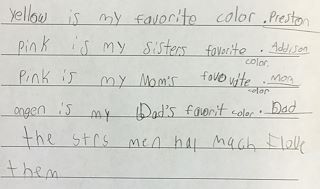 yellow is my favorite color. Preston
pink is my Sisters favorite color. Addison
Pink is my Mom's favovite color. Mom
ongen is my Dad's favorit color. Dad
the strs men haj mach I love
them